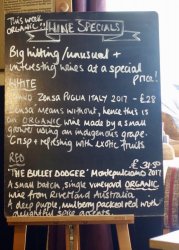 THIS WEEK
ORGANIC!!
WINE SPECIALS
Big hitting/unusual +
interesting wines at a special
price!
WHITE
ZENSA PUGLIA ITALY 2017 - £28
Zensa means without, hence this is
an ORGANIC wine made by a small
grower using an indigenous grape.
Crisp + refreshing with exotic fruits
RED
£31.50
"THE BULLET DODGER" Montepulciano 2017
A small batch, single vineyard ORGANIC
wine from Riverland Australia
A deep purple, mulberry packed red with
delightful spice accents